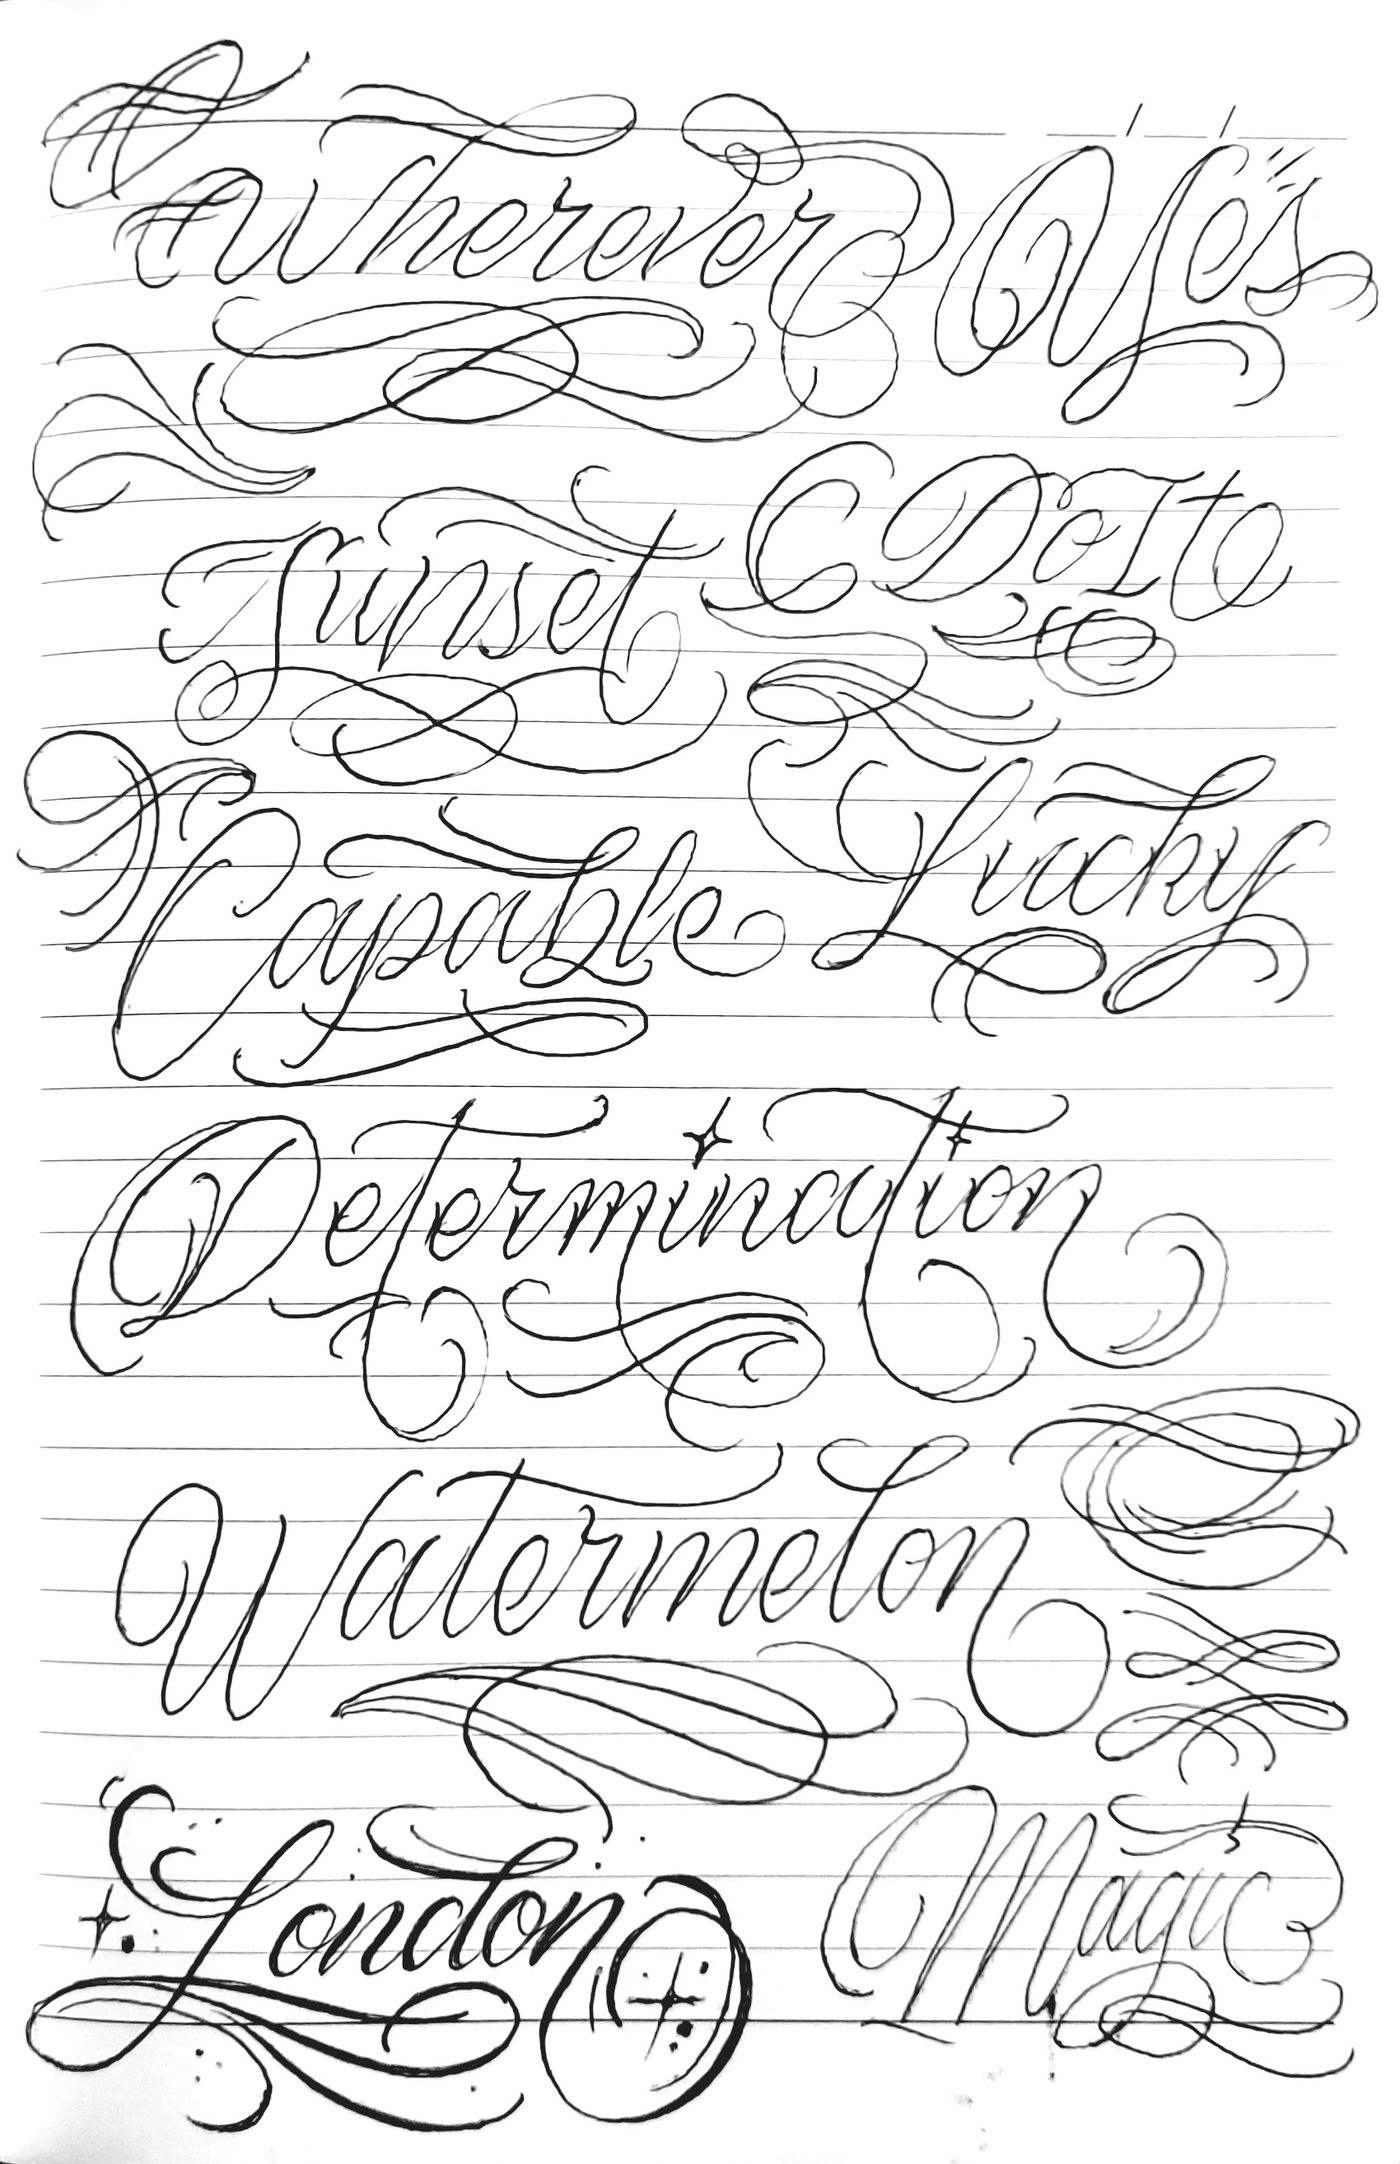 Wherever Yes
Sunset C Do It to
Capable Lucky
Determination
Watermelon
London Magic